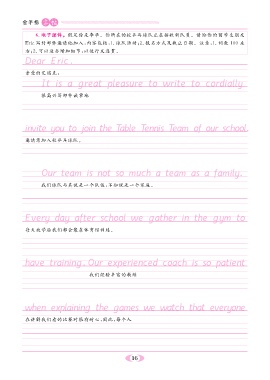 4. 假定你是李华，你所在的校乒乓球队正在招收新队员。请给你的留学生朋友
Eric 写封邮件邀请他加入，内容包括：1. 球队活动；2. 报名方式及截止日期。注意：1. 词数 100 左
右；2. 可以适当增加细节，以使行文连贯。
Dear Eric,
亲爱的艾瑞克：
It is a great pleasure to write to cordially
很高兴写邮件诚挚地
invite you to join the Table Tennis Team of our school.
邀请您加入校乒乓球队。
Our team is not so much a team as a family.
我们球队与其说是一个队伍，不如说是一个家庭。
Every day after school we gather in the gym to
每天放学后我们都会聚在体育馆训练。
have training. Our experienced coach is so patient
我们经验丰富的教练
when explaining the games we watch that everyone
在讲解我们看的比赛时很有耐心，因此，每个人
16